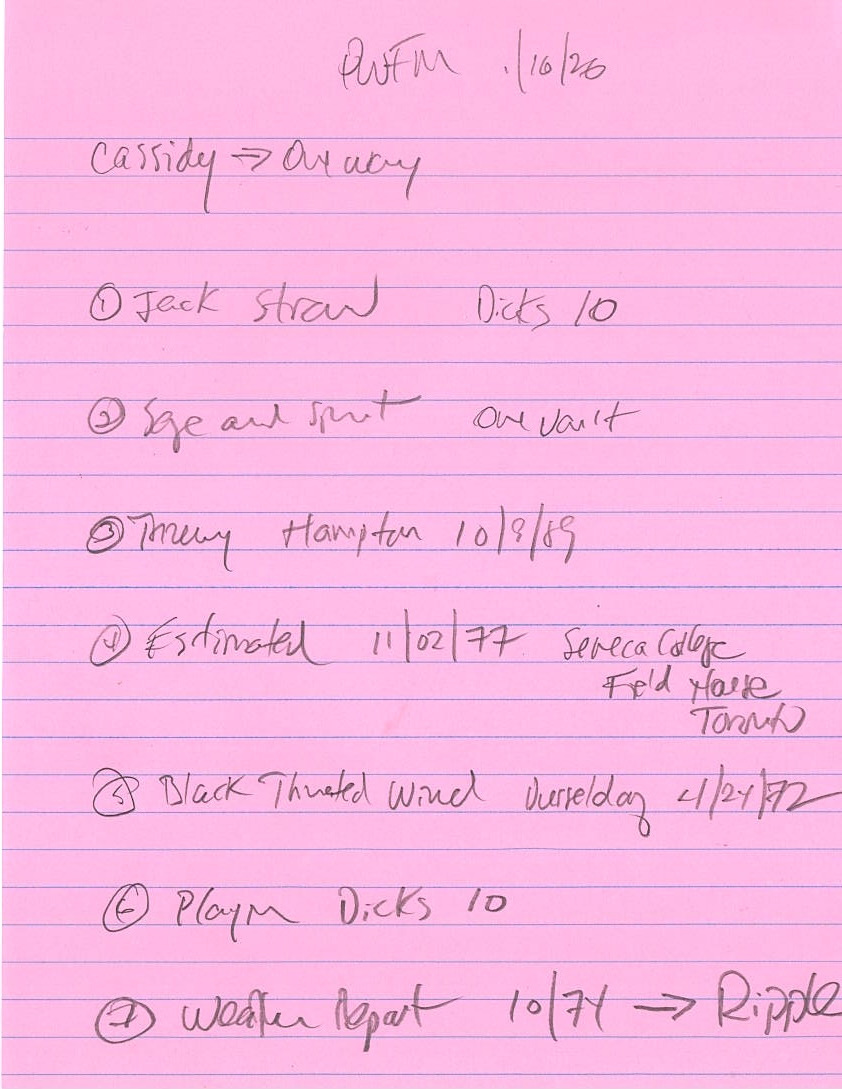 PWFM 1/10/26
Cassidy → Our way
① Jack Straw Dicks 10
② Sage and Spirit One Vault
③ Hampton 10/9/89
④ Estimated 11/02/77 Seneca College
Field House
Toronto
⑤ Black Throated Wind 4/24/72
⑥ Playin Dicks 10
⑦ Weather Report 10/74 → Ripple